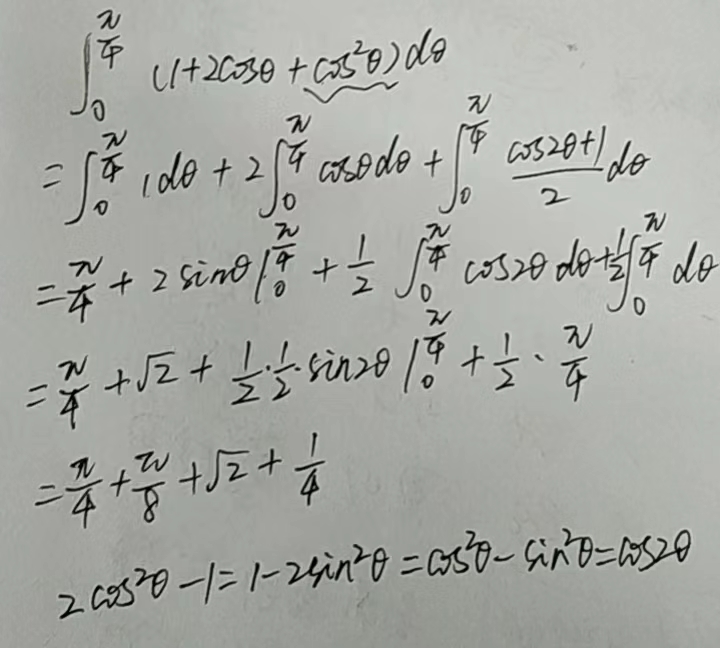 ∫₀^{π/4} (1+2cosθ+cos²θ)dθ
=∫₀^{π/4} 1dθ+2∫₀^{π/4} cosθdθ+∫₀^{π/4} \frac{cos2θ+1}{2}dθ
=\frac{π}{4}+2sinθ|₀^{π/4}+\frac{1}{2}∫₀^{π/4} cos2θdθ+\frac{1}{2}∫₀^{π/4} dθ
=\frac{π}{4}+√2+\frac{1}{2}·\frac{1}{2}·sin2θ|₀^{π/4}+\frac{1}{2}·\frac{π}{4}
=\frac{π}{4}+\frac{π}{8}+√2+\frac{1}{4}
2cos²θ-1=1-2sin²θ=cos²θ-sin²θ=cos2θ